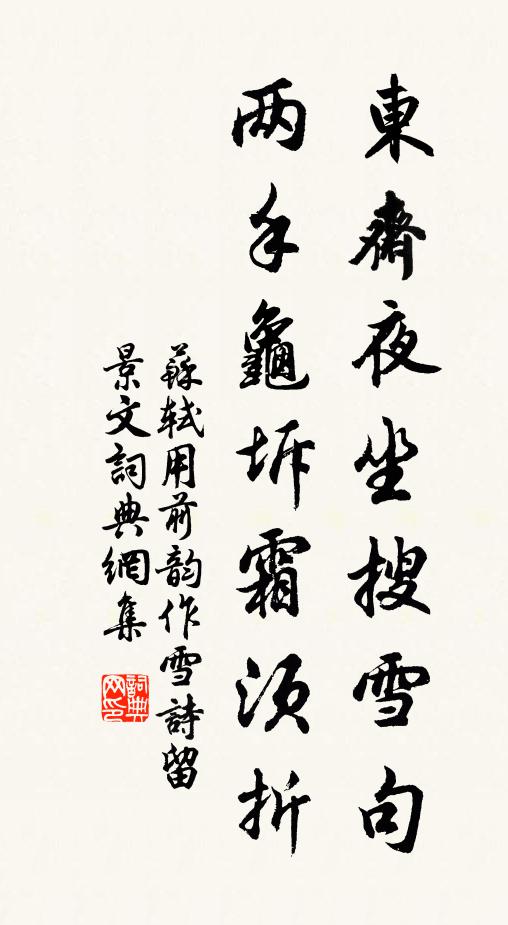 東齋夜坐搜雪句
两手龜坼霜須折
蘇軾用前韵作雪詩留
景文詞典網集
詞典网印